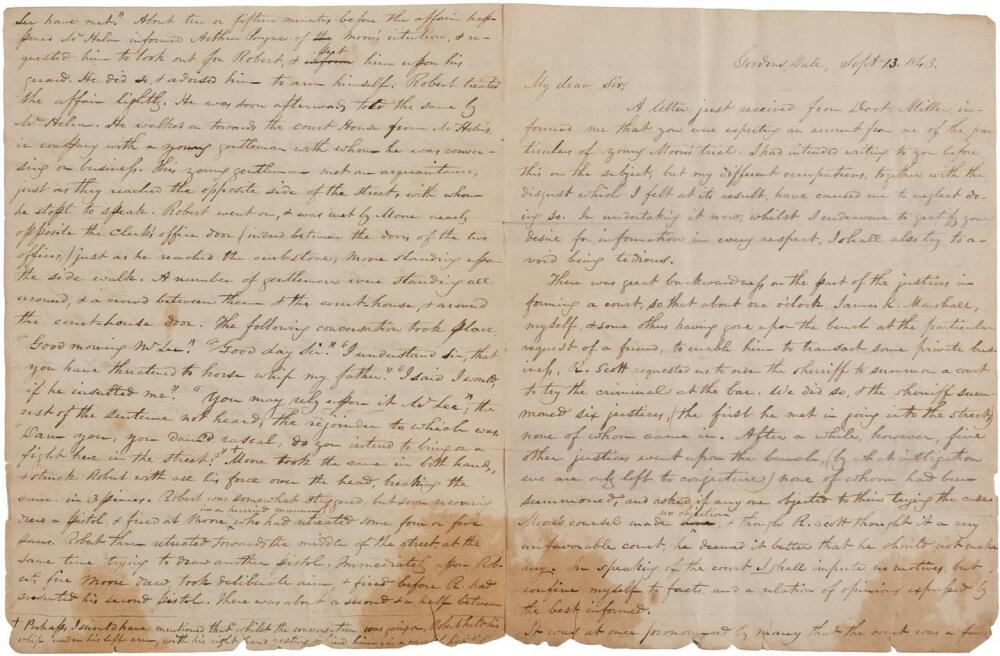 Lee have met." About ten or fifteen minutes before the affair hap-
pened Mr Helm informed Arthur Payne of Moore's intention, & re-
quested him to look out for Robert, & kept him upon his
guard. He did so, & advised him to arm himself. Robert treated
the affair lightly. He was soon afterward told the same by
Mr Helm. He walked on towards the court House from Mr Helm's,
in company with a young gentleman with whom he was conver-
sing on business. This young gentleman met an acquaintance,
just as they reached the opposite side of the street, with whom
he stopt to speak. Robert went on, & was met by Moore nearly
opposite the Clerk's office door (indeed between the doors of the two
offices,) just as he reached the curbstone; Moore standing upon
the side walk. A number of gentlemen were standing all
around, & a crowd between them & the court house, & around
the court house door. The following conversation took place
"Good morning Mr Lee." "Good day Sir." "I understand Sir, that
you have threatened to horse whip my father." "I said I would,
if he insulted me." "You may rely upon it Mr Lee"; the
rest of the sentence not heard; the rejoinder to which was,
"Damn you, you damn'd rascal, do you intend to bring on a
fight here in the street?" + Moore took the cane in both hands,
& struck Robert with all his force over the head, breaking the
cane in 3 pieces. Robert was somewhat staggered, but soon recovering
drew a pistol, & fired in a hurried manner at Moore, who had retreated some four or five
paces. Robert then retreated towards the middle of the street, at the
same time trying to draw another pistol. Immediately upon Rob-
ert's fire Moore drew, took deliberate aim & fired before R. had
presented his second pistol. There was about a second & a half between
+ Perhaps I should have mentioned that whilst the conversation was going on, Robert held his
whip under his left arm, with his right hand resting behind him
Gordons Dale, Sept 13. 1843.
My dear Sir,
A letter just received from Doct Miller, in-
formed me that you were expecting an account from me of the par-
ticulars of young Moore's trial. I had intended writing to you before
this on the subject, but my different occupations, together with the
disgust which I felt at its result, have caused me to neglect do-
ing so. In undertaking it now, whilst I endeavour to gratify your
desire for information in every respect, I shall also try to a-
void being tedious.
There was great backwardness on the part of the justices in
forming a court, so that about one o'clock, James K. Marshall,
myself, & some others having gone upon the bench at the particular
request of a friend, to enable him to transact some private busi-
ness, R. Scott requested us to order the sherriff to summon a court
to try the criminal at the bar. We did so, & the sheriff sum-
moned six justices, (the first he met in going into the street)
none of whom came in. After a while, however, five
other justices went upon the bench, (by what instigation
we are only left to conjecture) none of whom had been
summoned, and asked if any one objected to their trying the case.
Moore's counsel made no objection, & though R. Scott thought it a very
unfavourable court, he deemed it better that he should not make
any. In speaking of the court I shall impute no motives, but
confine myself to facts, and a relation of opinions expressed by
the best informed.
It was at once pronounced by many that the court was a